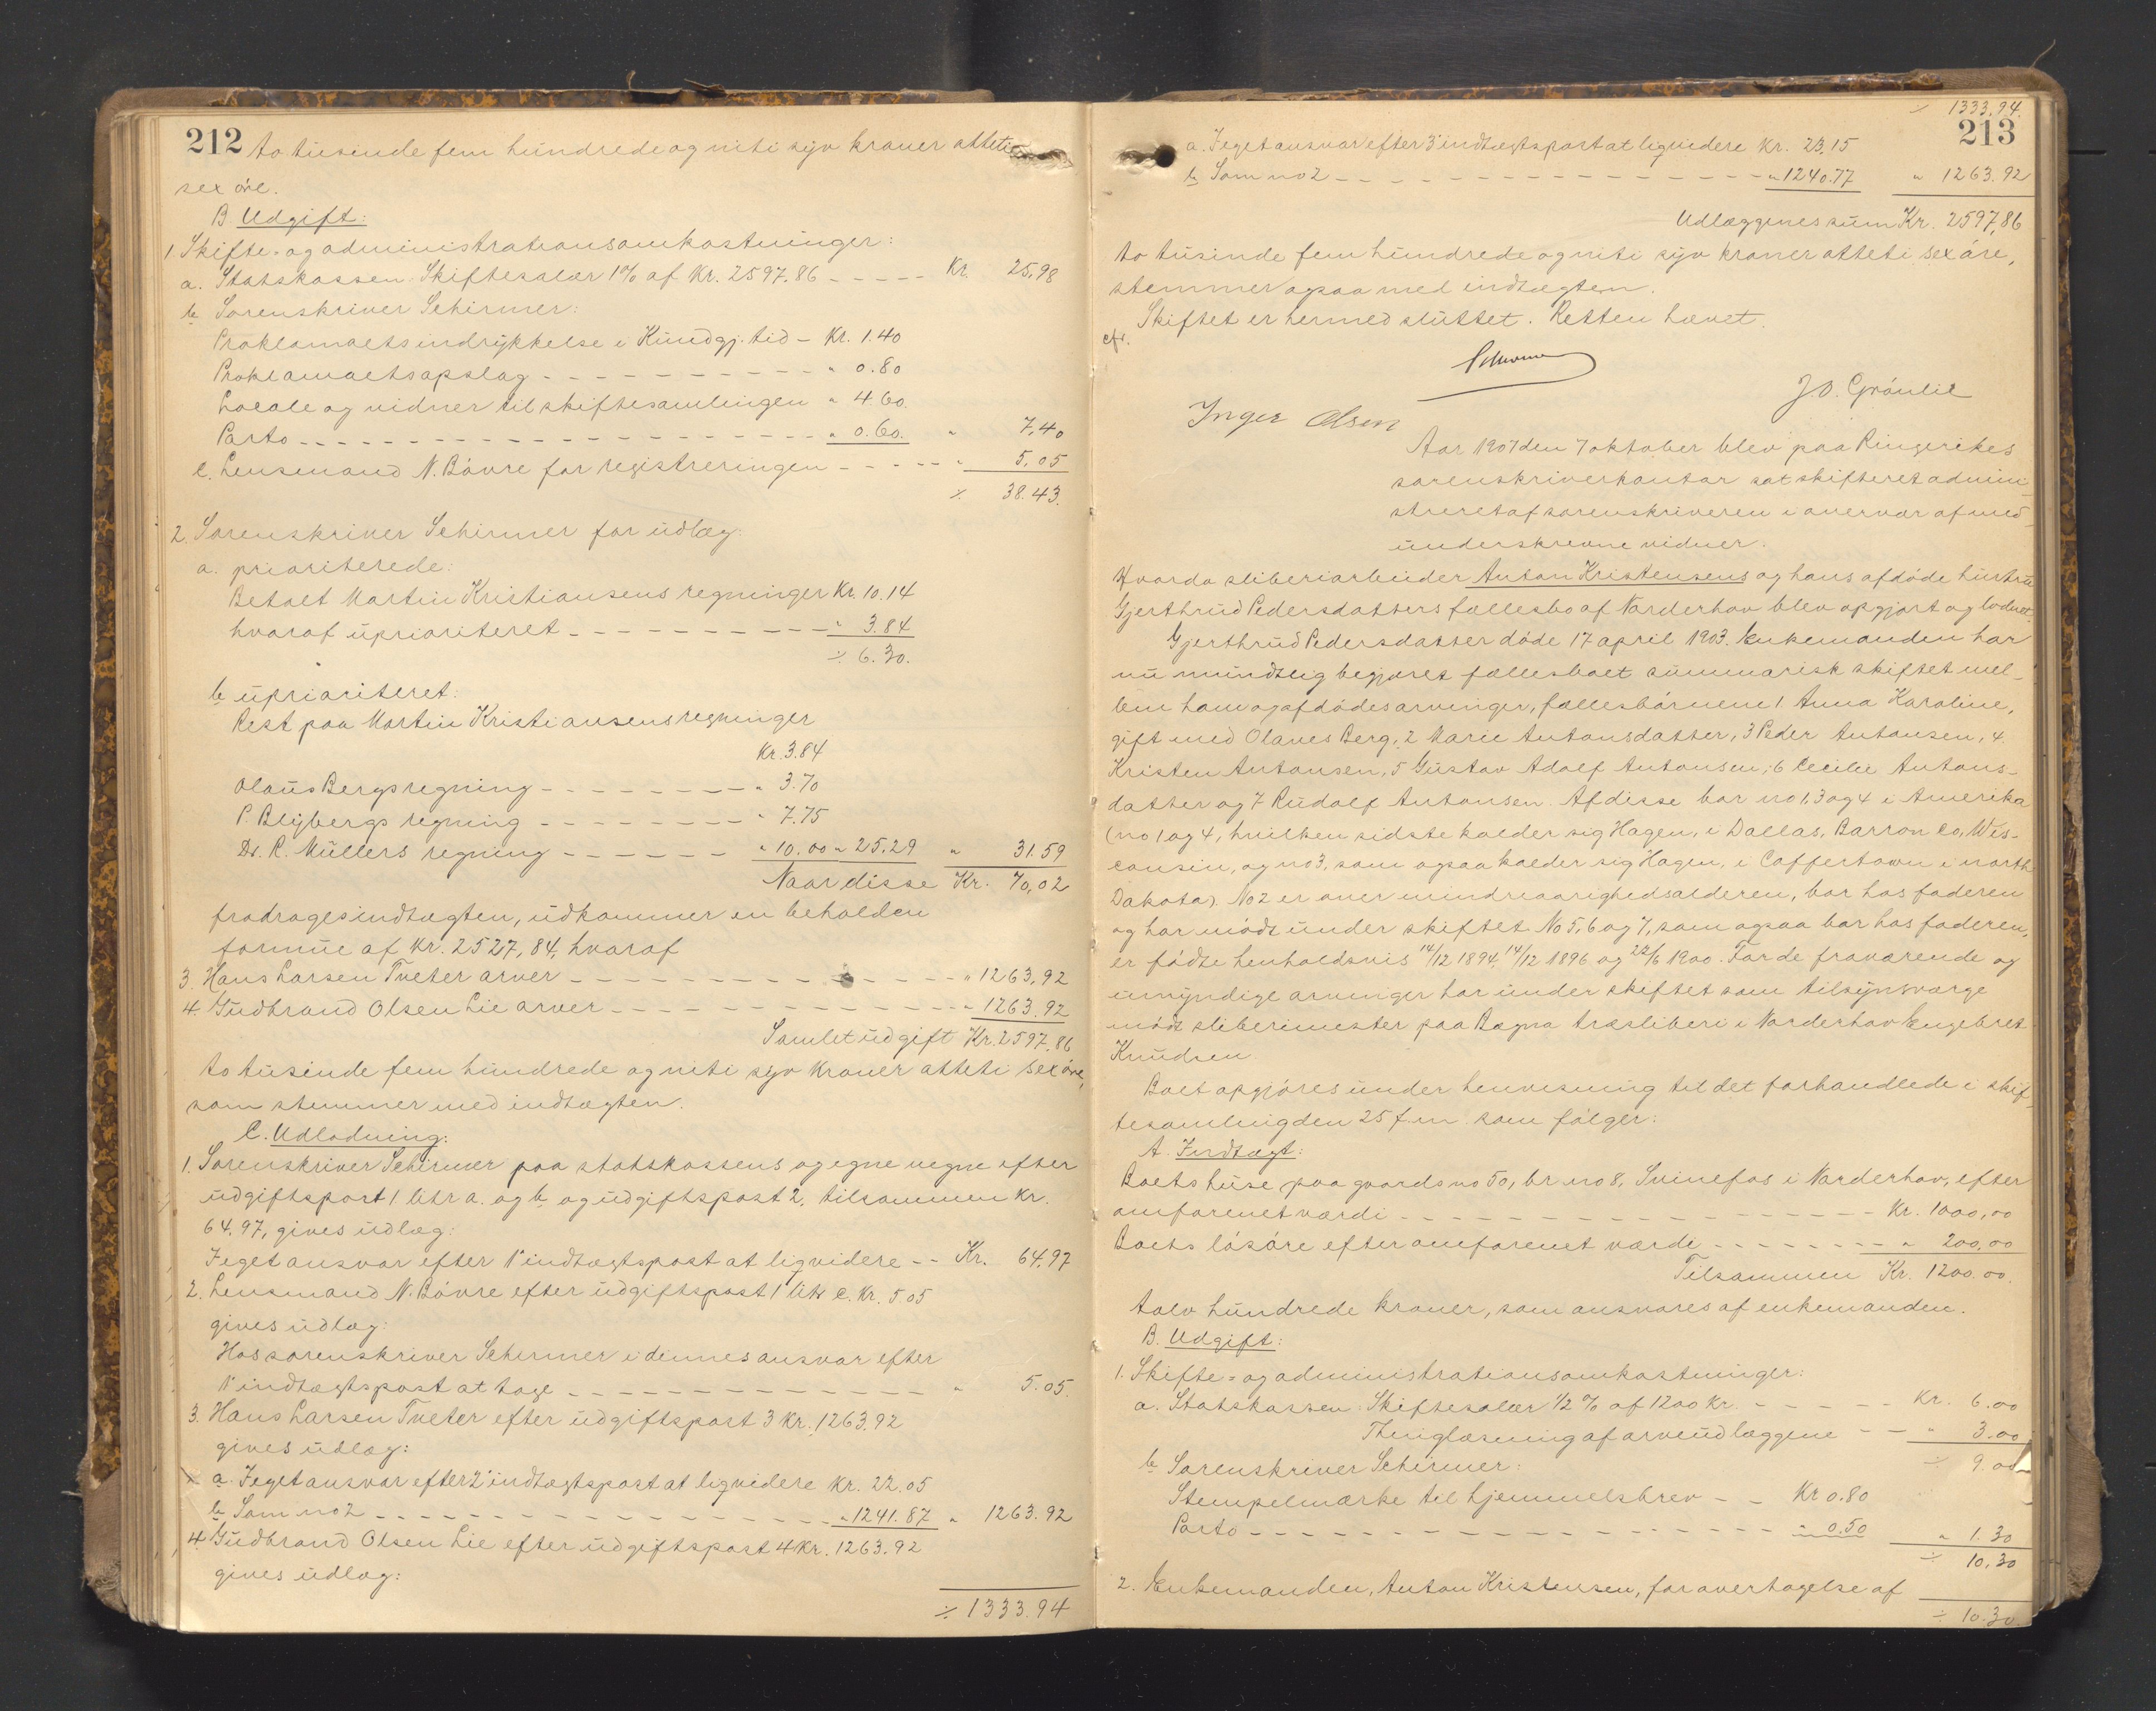 212 to tusinde fem hundrede og niti syv kroner atteti
sex öre.
B. Udgift:
1. Skifte- og administrationsomkostninger:
a. Statskassen: Skiftesalær 1% af Kr. 2597.86 - - - - Kr. 25,98
b. Sorenskriver Schirmer:
Proklamaetsindrykkelse i Kundgj. tid - Kr. 1.40
Proklamaetsopslag - - - - " 0.80
Locale og vidner til skiftesamlingen " 4.60.
Porto - - - - " 0.60. " 7,40
c. Lensmand N. Bövre for registreringen - - - - " 5,05
÷ 38.43.
2. Sorenskriver Schirmer for udlæg:
a. prioriterede:
Betalt Martin Kristiansens regninger Kr. 10.14
hvoraf uprioriteret - - - - " 3.84
÷ 6.30.
b. uprioriteret:
Rest paa Martin Kristiansens regninger
Kr. 3.84
Olaus Bergs regning - - - - " 3.70
P. Blybergs regning - - - - " 7.75
Dr. R. Müllers regning - - - - " 10.00 " 25.29 " 31.59
Naar disse Kr. 70,02
fradrages indtægten, udkommer en beholden
formue af Kr. 2527,84, hvoraf
3. Hans Larsen Tveter arver - - - - " 1263,92
4. Gudbrand Olsen Lie arver - - - - " 1263.92
Samlet udgift Kr. 2597.86
to tusinde fem hundrede og niti syv kroner atteti sex öre,
som stemmer med indtægten.
C. Udlodning:
1. Sorenskriver Schirmer paa statskassens og egne vegne efter
udgiftspost 1 litr a. og b. og udgiftspost 2, tilsammen Kr.
64.97, gives udlæg:
I eget ansvar efter 1' indtægtspost at liqvidere - - Kr. 64.97
2. Lensmand N. Bövre efter udgiftspost 1 litr c. Kr. 5.05
gives udlæg:
Hos sorenskriver Schirmer i dennes ansvar efter
1' indtægtspost at tage - - - - " 5.05.
3. Hans Larsen Tveter efter udgiftspost 3 Kr. 1263.92
gives udlæg:
a. I eget ansvar efter 2' indtægtspost at liqvidere Kr. 22.05
b. Som no 2 - - - - " 1241.87 " 1263.92
4. Gudbrand Olsen Lie efter udgiftspost 4 Kr. 1263.92
gives udlæg:
÷ 1333.94
÷ 1333,94.
213
a. I eget ansvar efter 3' indtægtspost at liqvidere Kr. 23,15
b. Som no 2 - - - - " 1240.77 " 1263.92
Udlæggenes sum Kr. 2597,86
to tusinde fem hundrede og niti syv kroner atteti sex öre,
stemmer ogsaa med indtægten.
Skiftet er hermed sluttet. Retten hævet.
cfr.
Schirmer
J O. Grönlie
Inger Olsen
Aar 1907 den 7 oktober blev paa Ringerikes
sorenskriverkontor sat skifteret admini-
streret af sorenskriveren i overvær af med-
underskrevne vidner.
Hvorda sliberiarbeider Anton Kristensens og hans afdöde hustru
Gjerthrud Pedersdatters fællesbo af Norderhov blev opgjort og lodnet.
Gjerthrud Pedersdatter döde 17 april 1903. Enkemanden har
nu mundtlig begjæret fællesboet summarisk skiftet mel-
lem ham og afdödes arvinger, fællesbörnene 1 Anna Karoline,
gift med Olaves Berg, 2 Marie Antonsdatter, 3 Peder Antonsen, 4.
Kristen Antonsen, 5 Gustav Adolf Antonsen, 6 Cecilie Antons-
datter og 7 Rudolf Antonsen. Af disse bor no 1, 3 og 4 i Amerika
(no 1 og 4, hvilken sidste kalder sig Hagen, i Dallas, Barron Co, Wis-
consin, og no 3, som ogsaa kalder sig Hagen, i Coffertown i north
Dakota). No 2 er over mindreaarighedsalderen, bor hos faderen
og har mödt under skiftet. No 5, 6 og 7, som ogsaa bor hos faderen,
er födte henholdsvis 14/12 1894, 14/12 1896 og 22/6 1900. For de fraværende og
umyndige arvinger har under skiftet som tilsynsværge
mödt sliberimester paa Bægna træsliberi i Norderhov Engebret
Knudsen.
Boet opgjöres under henvisning til det forhandlede i skif-
tesamling den 25 f.m. som fölger:
A. Indtægt:
Boets huse paa gaards no 50, br. no 8, Svinefos i Norderhov, efter
omforenet værdi - - - - Kr. 1000,00
Boets lösöre efter omforenet værdi - - - - " 200,00
Tilsammen Kr. 1200.00.
tolv hundrede kroner, som ansvares af enkemanden.
B. Udgift:
1. Skifte- og administrationsomkostninger:
a. Statskassen: Skiftesalær 1/2 % af 1200 Kr. - - - - Kr. 6.00
Thinglæsning af arveudlæggene - - " 3.00
÷ 9.00
b. Sorenskriver Schirmer:
Stempelmærke til hjemmelsbrev - - Kr 0.80
Porto - - - - " 0.50 " 1.30
÷ 10.30
2. Enkemanden, Anton Kristensen, for overtagelse af
÷ 10.30.